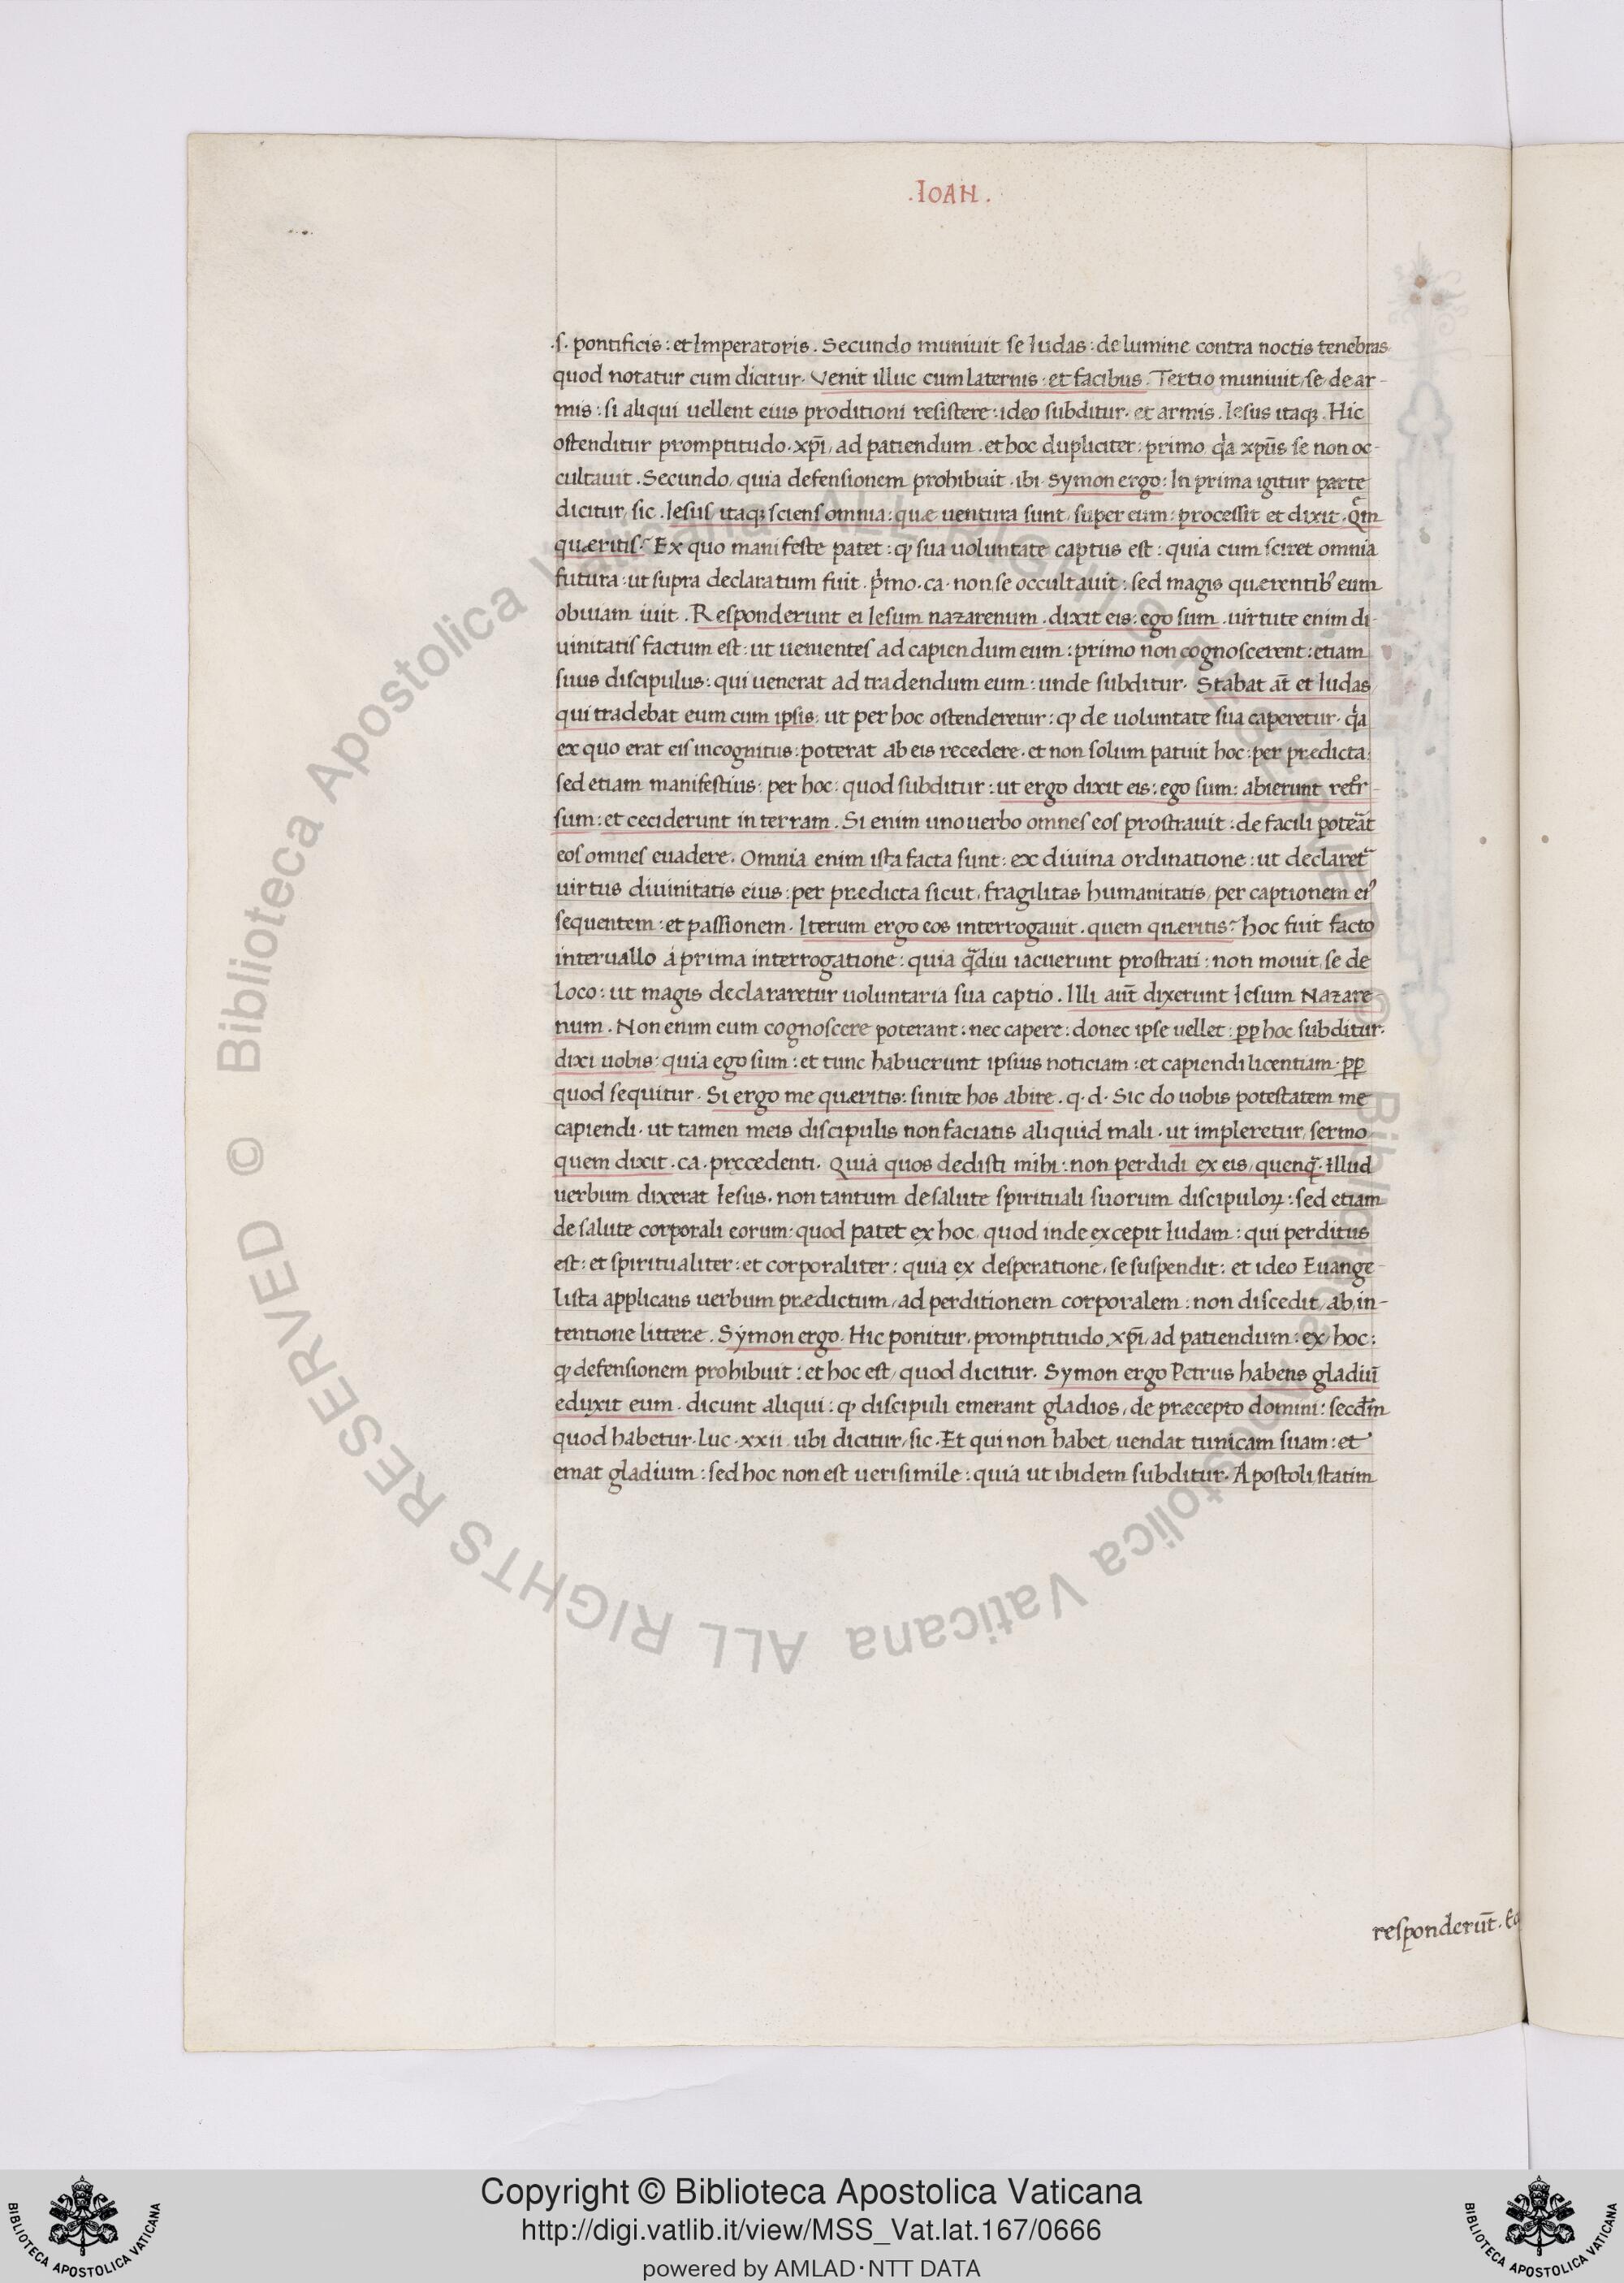 .IOAN.
.s. pontificis : et Imperatoris . Secundo muniuit se Iudas : de lumine contra noctis tenebras
quod notatur cum dicitur . Venit illuc cum laternis : et facibus . Tertio muniuit, se, de ar-
mis : si aliqui uellent eius proditioni resistere : ideo subditur . et armis . Iesus itaq; . Hic
ostenditur promptitudo . xp̄i, ad patiendum . et hoc dupliciter : primo, qa̍ xpūs se non oc-
cultauit . Secundo, quia defensionem prohibuit . ibi . Symon ergo : In prima igitur parte
dicitur, sic . Iesus itaq; sciens omnia : quæ uentura sunt, super eum : processit et dixit . Qm̄
quæritis? Ex quo manifeste patet : ꝙ sua uoluntate captus est : quia cum sciret omnia
futura : ut supra declaratum fuit . p̍mo . ca . non, se occultauit : sed magis quærentib9 eum
obuiam iuit . Responderunt ei Iesum nazarenum . dixit eis : ego sum . uirtute enim di-
uinitatis factum est : ut uenientes ad capiendum eum : primo non cognoscerent : etiam
suus discipulus : qui uenerat ad tradendum eum : unde subditur . Stabat at̄ et Iudas,
qui tradebat eum cum ipsis : ut per hoc ostenderetur : ꝙ de uoluntate sua caperetur . qa̍
ex quo erat eis incognitus : poterat ab eis recedere . et non solum patuit hoc : per prædicta :
sed etiam manifestius : per hoc : quod subditur : ut ergo dixit eis : ego sum : abierunt retr̄-
sum : et ceciderunt in terram . Si enim uno uerbo omnes eos prostrauit : de facili poteāt
eos omnes euadere . Omnia enim ista facta sunt : ex diuina ordinatione : ut declaret᷑
uirtus diuinitatis eius : per prædicta sicut, fragilitas humanitatis, per captionem ei9
sequentem : et passionem . Iterum ergo eos interrogauit . quem quæritis? hoc fuit facto
interuallo á prima interrogatione : quia q̄diu iacuerunt prostrati : non mouit, se de
loco : ut magis declararetur uoluntaria sua captio . Illi aut̄ dixerunt Iesum Nazare
num . Non enim eum cognoscere poterant : nec capere : donec ipse uellet : ꝓꝑ hoc subditur .
dixi uobis : quia ego sum : et tunc habuerunt ipsius noticiam : et capiendi licentiam . ꝓꝑ
quod sequitur . Si ergo me quæritis : sinite hos abire . q . d . Sic do uobis potestatem me
capiendi . ut tamen meis discipulis non faciatis aliquid mali . ut impleretur, sermo
quem dixit . ca . precedenti . Quia quos dedisti mihi : non perdidi ex eis, quenq̄ . Illud
uerbum dixerat Iesus . non tantum de salute spirituali suorum discipuloꝝ : sed etiam
de salute corporali eorum : quod patet ex hoc, quod inde excepit Iudam : qui perditus
est : et spiritualiter : et corporaliter : quia ex desperatione, se suspendit : et ideo Euange-
lista applicans uerbum prædictum, ad perditionem corporalem : non discedit, ab, in-
tentione litteræ . Symon ergo . Hic ponitur, promptitudo, xp̄i, ad patiendum : ex, hoc :
ꝙ defensionem prohibuit : et hoc est, quod dicitur . Symon ergo Petrus habens gladiū
eduxit eum . dicunt aliqui : ꝙ discipuli emerant gladios, de præcepto domini : secd̄m
quod habetur . luc . xxii . ubi dicitur, sic . Et qui non habet, uendat tunicam suam : et
emat gladium : sed hoc non est uerisimile : quia ut ibidem subditur . Apostoli, statim
responderūt .
© Biblioteca Apostolica Vaticana ALL RIGHTS RESERVED
© Biblioteca Apostolica Vaticana ALL RIGHTS RESERVED
Copyright © Biblioteca Apostolica Vaticana
http://digi.vatlib.it/view/MSS_Vat.lat.167/0666
powered by AMLAD·NTT DATA
BIBLIOTECA APOSTOLICA VATICANA
BIBLIOTECA APOSTOLICA VATICANA